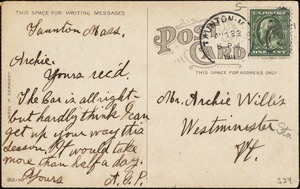 THIS SPACE FOR WRITING MESSAGES
Taunton Mass.
Archie.
Yours rec'd.
The Bar is all right-
but hardly think I can
get up your way this
season. It would take
more than half a day.
Yours A.E.P.
POST CARD
THIS SPACE IS FOR ADDRESS ONLY
TAUNTON
Mr. Archie Willis
Westminster Sta
Vt.
534